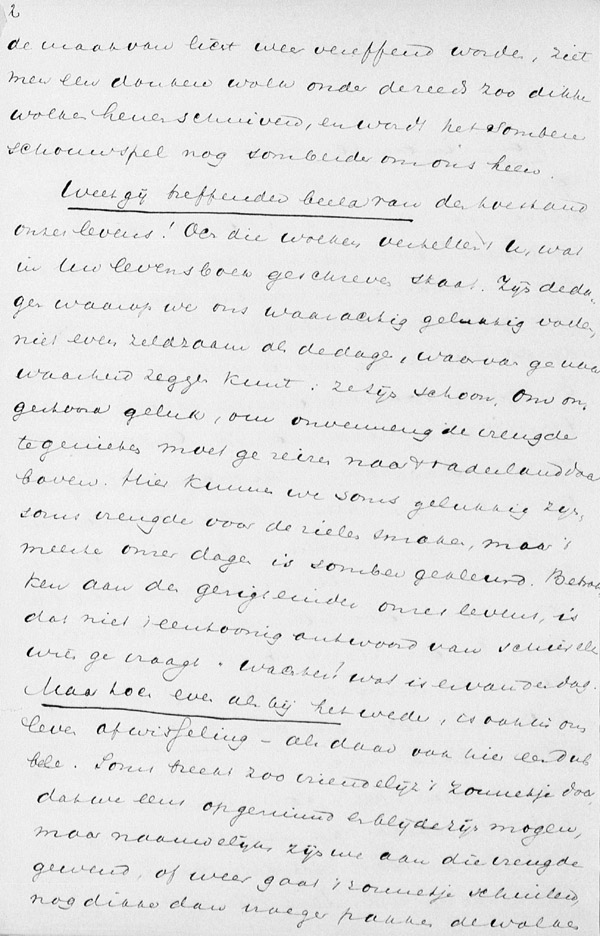 2
de maar van licht weer vereffend worden, ziet
men een donkere wolk onder de reeds zoo dikke
wolken henen schuivend, en wordt het sombere
schouwspel nog somberder om ons heen.
Weet gij treffender beeld van den toestand
onzes levens! Och die wolken vertellen U, wat
in Uw levensboek geschreven staat. Zijn de da-
gen waarop we ons waarachtig gelukkig voelen,
niet even zeldzaam als de dagen, waarvan ge naar
waarheid zeggen kunt: ze zijn schoon. Om on-
gestoord geluk, om onvermengde vreugde
te genieten moet ge reizen naar 't Vaderland daar
boven. Hier kunnen we soms gelukkig zijn,
soms vreugde voor de zielen smaken, maar 't
meeste onzer dagen is somber gekleurd. Betrok-
ken aan den gezigteinder onzes levens, is
dat niet 't eentoonig antwoord van schier elk
wien ge vraagt: wachter! wat is er van den dag.
Maar toch even als bij het weder, is ook in ons
leven afwisseling – als daar ook hier eene dub-
bele. Soms breekt zoo vriendelijk 't zonnetje door
dat we eens opgeruimd en blijde zijn mogen,
maar naauwelijks zijn we aan die vreugde
gewend, of weer gaat 't zonnetje schuilen
nog dikker dan vroeger pakken de wolken